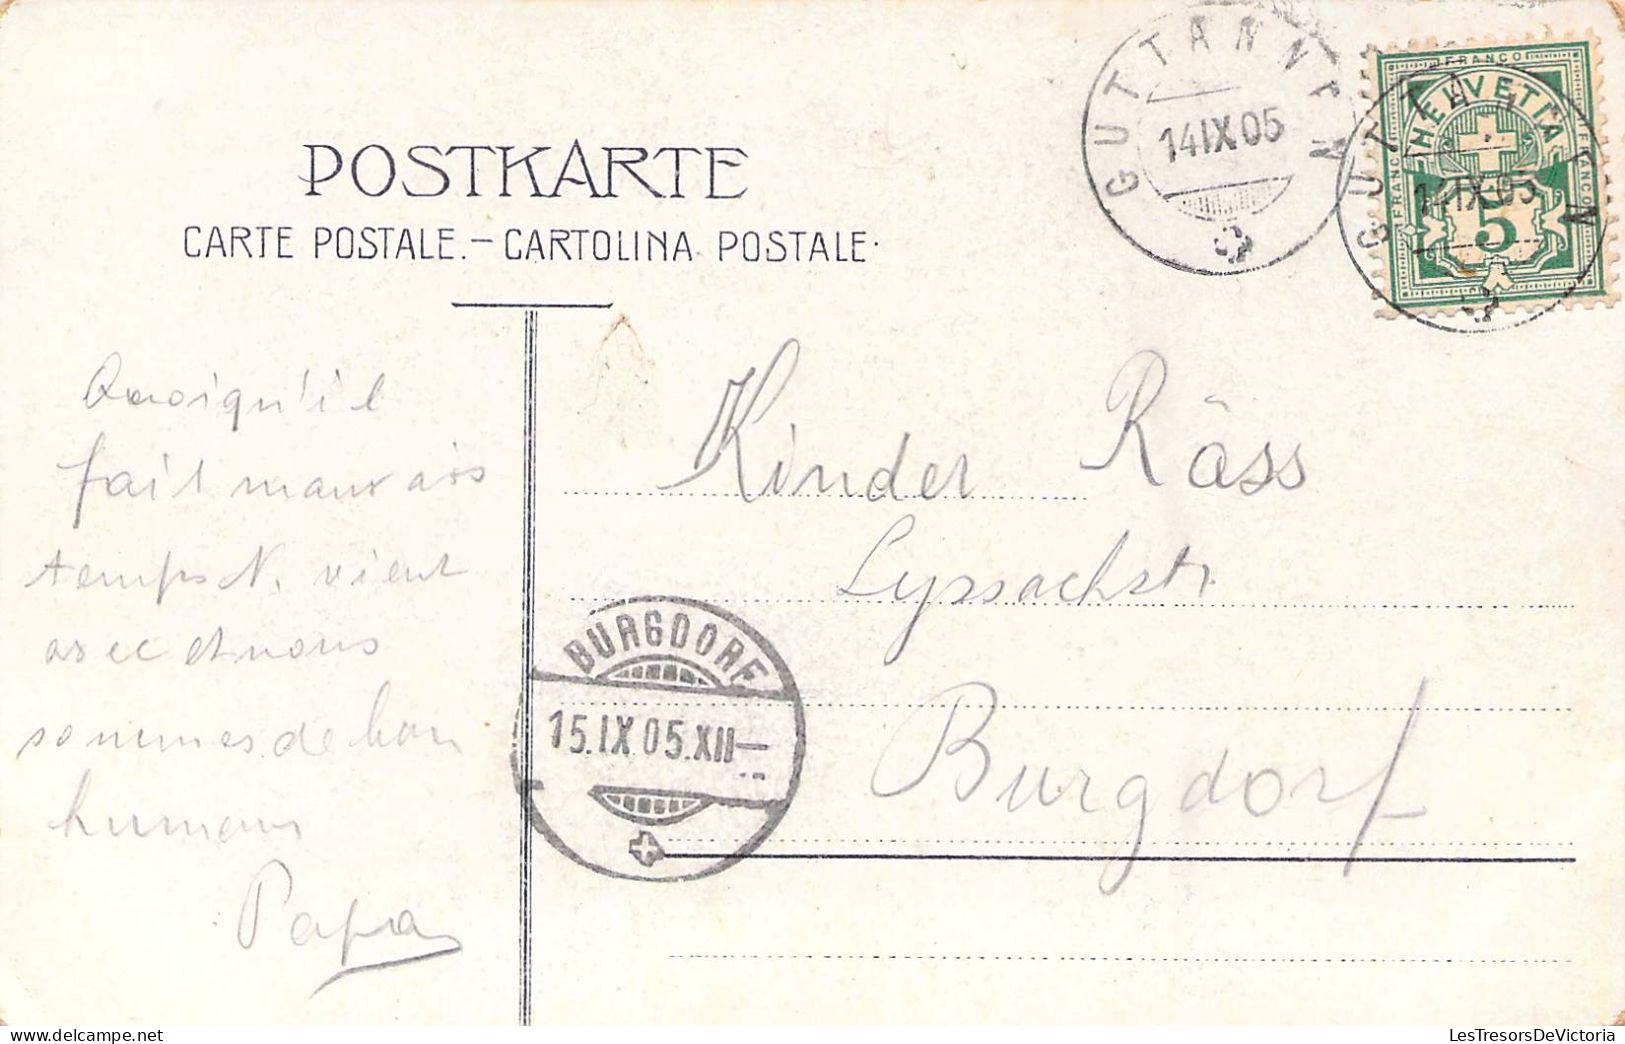 POSTKARTE
CARTE POSTALE.–CARTOLINA POSTALE.
GUTTANNEN
14 IX 05
FRANCO
HELVETIA
FRANCO
FRANCO
5
GUTTANNEN
14 IX 05
Quoiqu'il
fait mauvais
temps N. vient
avec et nous
sommes de bon
humeur
Papa
Kinder Räss
Lyssachstr
Burgdorf
BURGDORF
15.IX.05.XII–
LesTresorsDeVictoria